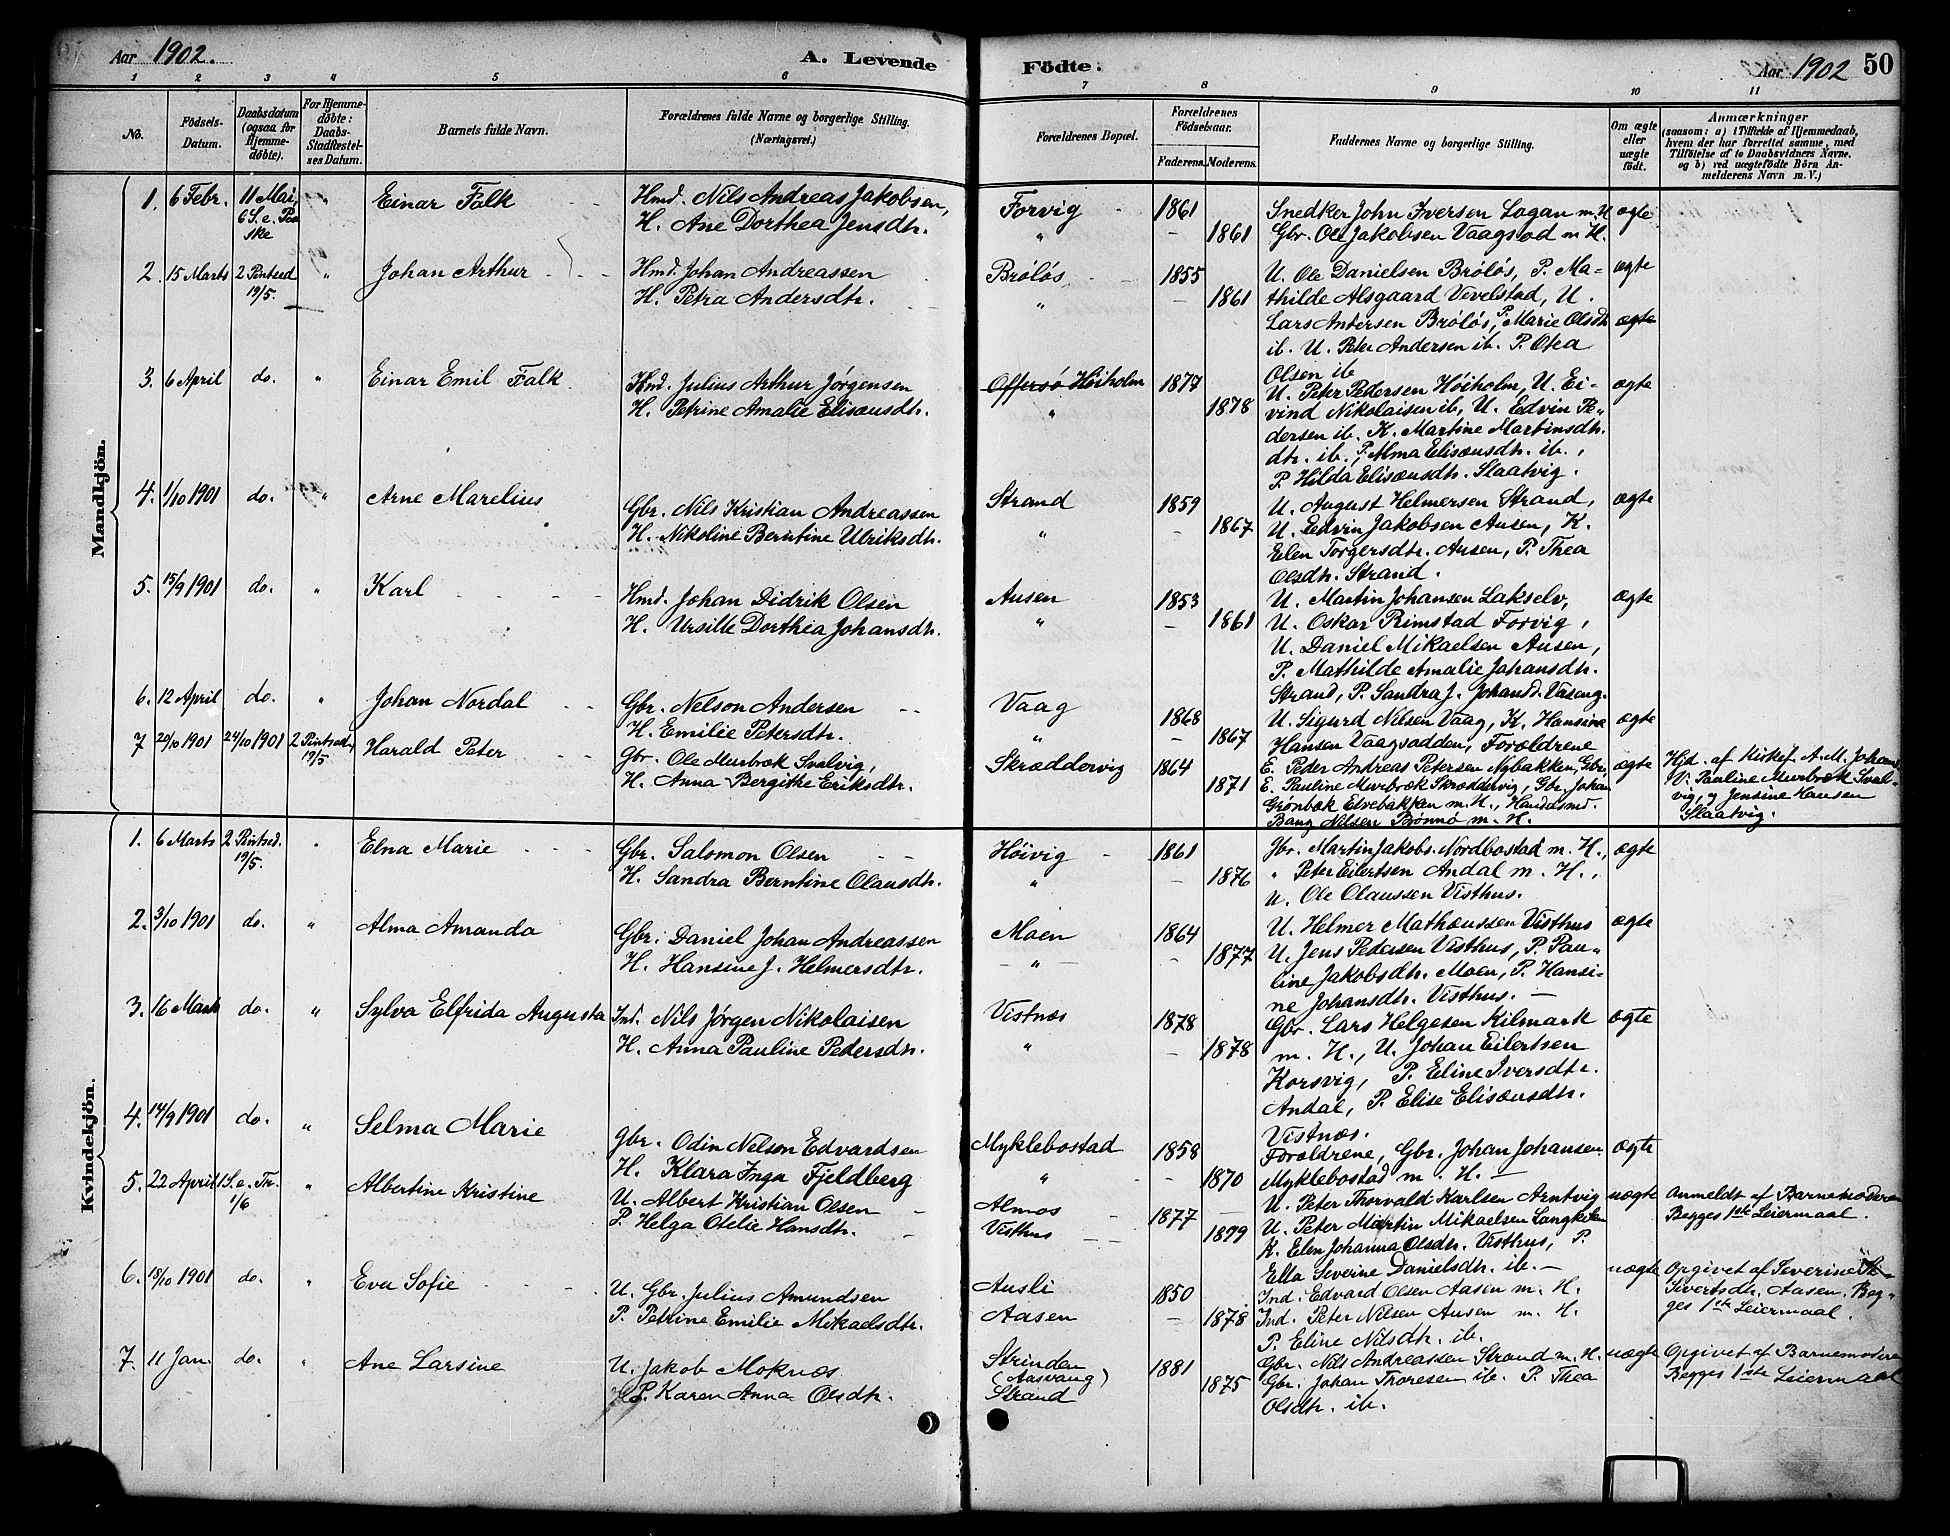 Aar 1902. A. Levende Fødte. Aar 1902 50
1 2 3 4 5 6 7 8 9 10 11
No.
Fødsels-
Datum.
Daabsdatum
(ogsaa for
Hjemme-
døbte).
For Hjemme-
døbte:
Daabs-
Stadfæstel-
ses Datum.
Barnets fulde Navn.
Forældrenes fulde Navne og borgerlige Stilling.
(Næringsvei.)
Forældrenes Bopæl.
Forældrenes
Fødselsaar.
Faderens. Moderens.
Faddernes Navne og borgerlige Stilling.
Om ægte
eller
uægte
født.
Anmærkninger
(saasom: a) i Tilfælde af Hjemmedaab,
hvem der har forrettet samme, med
Tilføielse af to Daabsvidners Navne,
og b) ved uægtefødte Børn An-
melderens Navn m. V.)
Mandkjøn.
1. 6 Febr. 11 Mai, Einar Falk Hmd. Nils Andreas Jakobsen, Forvig 1861 Snedker John Iversen Logan m. H ægte
6 S. e. Paa
ske H. Ane Dorthea Jensdtr. " 1861 Gbr. Ole Jakobsen Vaagsod m H.
2. 15 Marts 2 Pintsed " Johan Arthur Hmd. Johan Andreassen Brøløs 1855 U. Ole Danielsen Brøløs, P. Ma= ægte
19/5. H. Petra Andersdtr. " — 1861 thilde Alsgaard Vevelstad, U.
Lars Andersen Brøløs, P. Marie Olsdtr ægte
ib. U. Peter Andersen ib. P. Olea
Olsen ib
3. 6 April do. " Einar Emil Falk Hmd. Julius Arthur Jørgensen Offersø Høiholm 1877 U. Peter Pedersen Høiholm, U. Ei- ægte
H. Petrine Amalie Elisæusdtr. " 1878 vind Nikolaisen ib, U. Edvin Pe-
dersen ib. K. Martine Martinsdtr.
dtr. ib., P. Alma Elisæusdtr. ib.,
P. Hilda Elisæusdtr. Slaatvig.
4. 1/10 1901 do. " Arne Marelius Gbr. Nils Kristian Andreassen Strand 1859 U. August Helmersen Strand, ægte
H. Nikoline Berntine Ulriksdtr. " — 1867 U. Edvin Jakobsen Ausen, K.
Elen Torgersdtr. Ausen, P. Thea
Olsdtr. Strand.
5. 15/9 1901 do. " Karl Hmd. Johan Didrik Olsen Ausen 1853 U. Martin Johansen Lakselv, ægte
H. Ursille Dorthea Johansdtr. " 1861 U. Oskar Rimstad Forvig,
U. Daniel Mikaelsen Ausen,
P. Mathilde Amalie Johansdtr.
Strand, P. Sandra J. Johansd.
6. 12 April do. " Johan Nordal Gbr. Nelson Andersen Vaag 1868 U. Sigurd Nilsen Vaag, K. Hansina ægte
H. Emilie Petersdtr. " — 1867 Hansen Vaagvadden, Forældrene
7 20/10 1901 24/10 1901 2 Pintsed. 19/5 Harald Peter Gbr. Ole Murbræk Svalvig, Skræddervig 1864 E. Peder Andreas Petersen Nybakken, Gbr. ægte Hjd. af Kirkesj. A. M. Johans
H. Anna Bergithe Eriksdtr. 1871 E. Pauline Murbræk Skræddervig, Gbr. Johan V. Pauline Murbræk Sval-
Grønbæk Elvebakken m. H., Handelsmd. vig, og Jensine Hansen
Bang Nilsen Brønnø m. H. Slaatvig.
Kvindekjøn.
1. 6 Marts 2 Pintsed. " Elna Marie Gbr. Salomon Olsen Høivig 1861 Gbr. Martin Jakobs. Nordbostad m. H., ægte
19/5. H. Sandra Berntine Olausdtr. " — 1876 " Peter Eilertsen Andal m. H.,
U. Ole Olaussen Visthus.
2. 3/10 1901 do. " Alma Amanda Gbr. Daniel Johan Andreassen Moen 1864 U. Helmer Mathæussen Visthus ægte
H. Hansine J. Helmersdtr. — " — 1877 U. Jens Pedersen Visthus, P. Pau-
line Jakobsdtr. Moen, P. Hansi-
ne Johansdtr. Visthus. —
3. 16 Marts do. " Sylva Elfrida Augusta Ind. Nils Jørgen Nikolaisen Vistnæs 1878 Gbr. Lars Helgesen Kilmark ægte
H. Anna Pauline Pedersdtr. " — 1878 m. H., U. Johan Eilertsen
Korsvig, P. Eline Iversdtr.
Andal, P. Elise Elisæusdtr.
Vistnæs.
4. 14/9 1901 do. " Selma Marie Gbr. Odin Nelson Edvardsen Myklebostad 1858 Forældrene, Gbr. Johan Johansen ægte
H. Klara Inga Fjeldberg " — 1870 Myklebostad m. H. —
5. 22 April 1 S. e. Tr. " Albertine Kristine U. Albert Kristian Olsen Almos 1877 U. Peter Thorvald Karlsen Arntvig uægte Anmeldt af Barnemoderen
1/6 P. Helga Otelie Hansdtr. Visthus 1879 U. Peter Martin Mikaelsen Begges 1ste Leiermaal.
K. Elen Johanna Olsdtr. Visthus, P.
Ella Severine Danielsdtr. ib. —
6. 18/10 1901 do. " Eva Sofie U. Gbr. Julius Amundsen Ausli 1850 Ind. Edvard Olsen Aasen m. H. uægte Opgivet af Severine
P. Petrine Emilie Mikaelsdtr. Aasen — 1878 Ind. Peter Nilsen Ausen m. H Sivertsdtr. Aasen. Beg-
P. Eline Nilsdtr. ib. ges 1ste Leiermaal.
7. 11 Jan. do. " Ane Larsine U. Jakob Moknæs Strinden 1881 Gbr. Nils Andreassen Strand m. H. uægte Opgivet af Barnemoderen
(Aasvang)
P. Karen Anna Olsdtr. Strand 1875 Gbr. Johan Thoresen ib. P. Thea Begges 1ste Leiermaal
Olsdtr. ib.